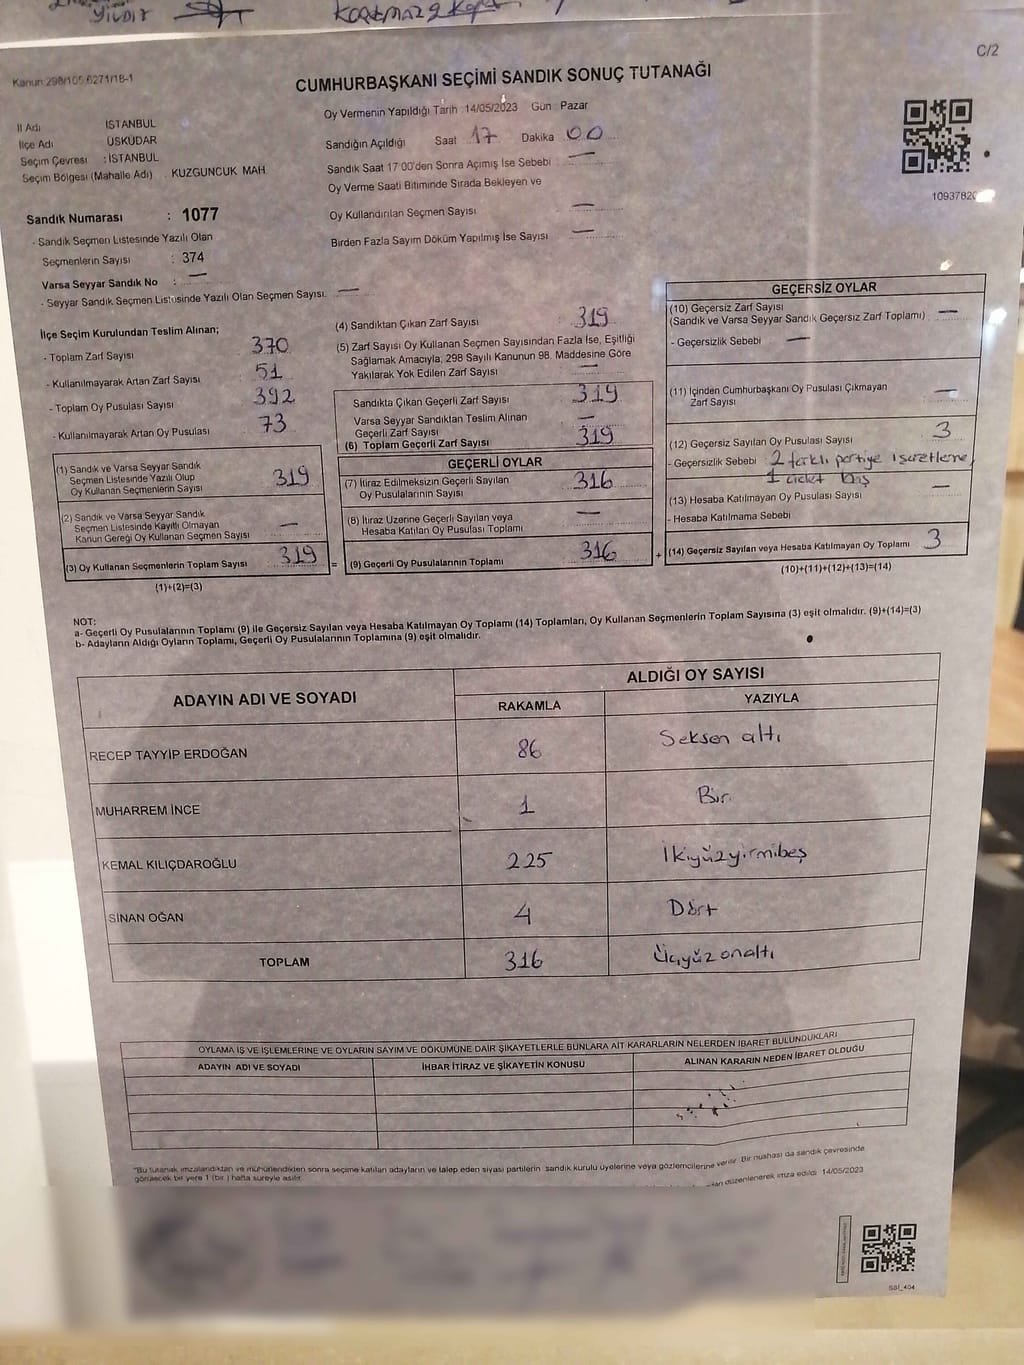 C/2
Kanun 298/105 6271/18-1
CUMHURBAŞKANI SEÇİMİ SANDIK SONUÇ TUTANAĞI
Oy Vermenin Yapıldığı Tarih : 14/05/2023 Gün : Pazar
İl Adı İSTANBUL
İlçe Adı ÜSKÜDAR
Seçim Çevresi : İSTANBUL
Seçim Bölgesi (Mahalle Adı) . KUZGUNCUK MAH.
Sandığın Açıldığı Saat 17 Dakika 00
Sandık Saat 17:00'den Sonra Açımış İse Sebebi —
Oy Verme Saati Bitiminde Sırada Bekleyen ve
Oy Kullandırılan Seçmen Sayısı —
Birden Fazla Sayım Döküm Yapılmış İse Sayısı —
Sandık Numarası : 1077
- Sandık Seçmen Listesinde Yazılı Olan
Seçmenlerin Sayısı : 374
Varsa Seyyar Sandık No : —
- Seyyar Sandık Seçmen Listesinde Yazılı Olan Seçmen Sayısı: —
İlçe Seçim Kurulundan Teslim Alınan;
- Toplam Zarf Sayısı 370
- Kullanılmayarak Artan Zarf Sayısı 51
- Toplam Oy Pusulası Sayısı 392
- Kullanılmayarak Artan Oy Pusulası 73
(1) Sandık ve Varsa Seyyar Sandık
Seçmen Listesinde Yazılı Olup
Oy Kullanan Seçmenlerin Sayısı 319
(2) Sandık ve Varsa Seyyar Sandık
Seçmen Listesinde Kayıtlı Olmayan
Kanun Gereği Oy Kullanan Seçmen Sayısı —
(3) Oy Kullanan Seçmenlerin Toplam Sayısı 319
(1)+(2)=(3)
(4) Sandıktan Çıkan Zarf Sayısı 319
(5) Zarf Sayısı Oy Kullanan Seçmen Sayısından Fazla İse, Eşitliği
Sağlamak Amacıyla, 298 Sayılı Kanunun 98. Maddesine Göre
Yakılarak Yok Edilen Zarf Sayısı —
Sandıkta Çıkan Geçerli Zarf Sayısı 319
Varsa Seyyar Sandıktan Teslim Alınan
Geçerli Zarf Sayısı —
(6) Toplam Geçerli Zarf Sayısı 319
GEÇERLİ OYLAR
(7) İtiraz Edilmeksizin Geçerli Sayılan
Oy Pusulalarının Sayısı 316
(8) İtiraz Üzerine Geçerli Sayılan veya
Hesaba Katılan Oy Pusulası Toplamı —
= (9) Geçerli Oy Pusulalarının Toplamı 316
GEÇERSİZ OYLAR
(10) Geçersiz Zarf Sayısı
(Sandık ve Varsa Seyyar Sandık Geçersiz Zarf Toplamı) —
- Geçersizlik Sebebi : —
(11) İçinden Cumhurbaşkanı Oy Pusulası Çıkmayan
Zarf Sayısı —
(12) Geçersiz Sayılan Oy Pusulası Sayısı 3
- Geçersizlik Sebebi : 2 farklı partiye işaretleme,
1 adet boş
(13) Hesaba Katılmayan Oy Pusulası Sayısı —
- Hesaba Katılmama Sebebi
+ (14) Geçersiz Sayılan veya Hesaba Katılmayan Oy Toplamı 3
(10)+(11)+(12)+(13)=(14)
NOT:
a- Geçerli Oy Pusulalarının Toplamı (9) ile Geçersiz Sayılan veya Hesaba Katılmayan Oy Toplamı (14) Toplamları, Oy Kullanan Seçmenlerin Toplam Sayısına (3) eşit olmalıdır. (9)+(14)=(3)
b- Adayların Aldığı Oyların Toplamı, Geçerli Oy Pusulalarının Toplamına (9) eşit olmalıdır.
ADAYIN ADI VE SOYADI
ALDIĞI OY SAYISI
RAKAMLA YAZIYLA
RECEP TAYYİP ERDOĞAN 86 Seksen altı
MUHARREM İNCE 1 Bir
KEMAL KILIÇDAROĞLU 225 İkiyüzyirmibeş
SİNAN OĞAN 4 Dört
TOPLAM 316 Üçyüzonaltı
OYLAMA İŞ VE İŞLEMLERİNE VE OYLARIN SAYIM VE DÖKÜMÜNE DAİR ŞİKAYETLERLE BUNLARA AİT KARARLARIN NELERDEN İBARET BULUNDUKLARI
ADAYIN ADI VE SOYADI İHBAR İTİRAZ VE ŞİKAYETİN KONUSU ALINAN KARARIN NEDEN İBARET OLDUĞU
"Bu tutanak imzalandıktan ve mühürlendikten sonra seçime katılan adayların ve talep eden siyasi partilerin sandık kurulu üyelerine veya gözlemcilerine verilir. Bir nüshası da sandık çevresinde
görülecek bir yere 1 (bir) hafta süreyle asılır.
düzenlenerek imza edildi. 14/05/2023
SSİ_404